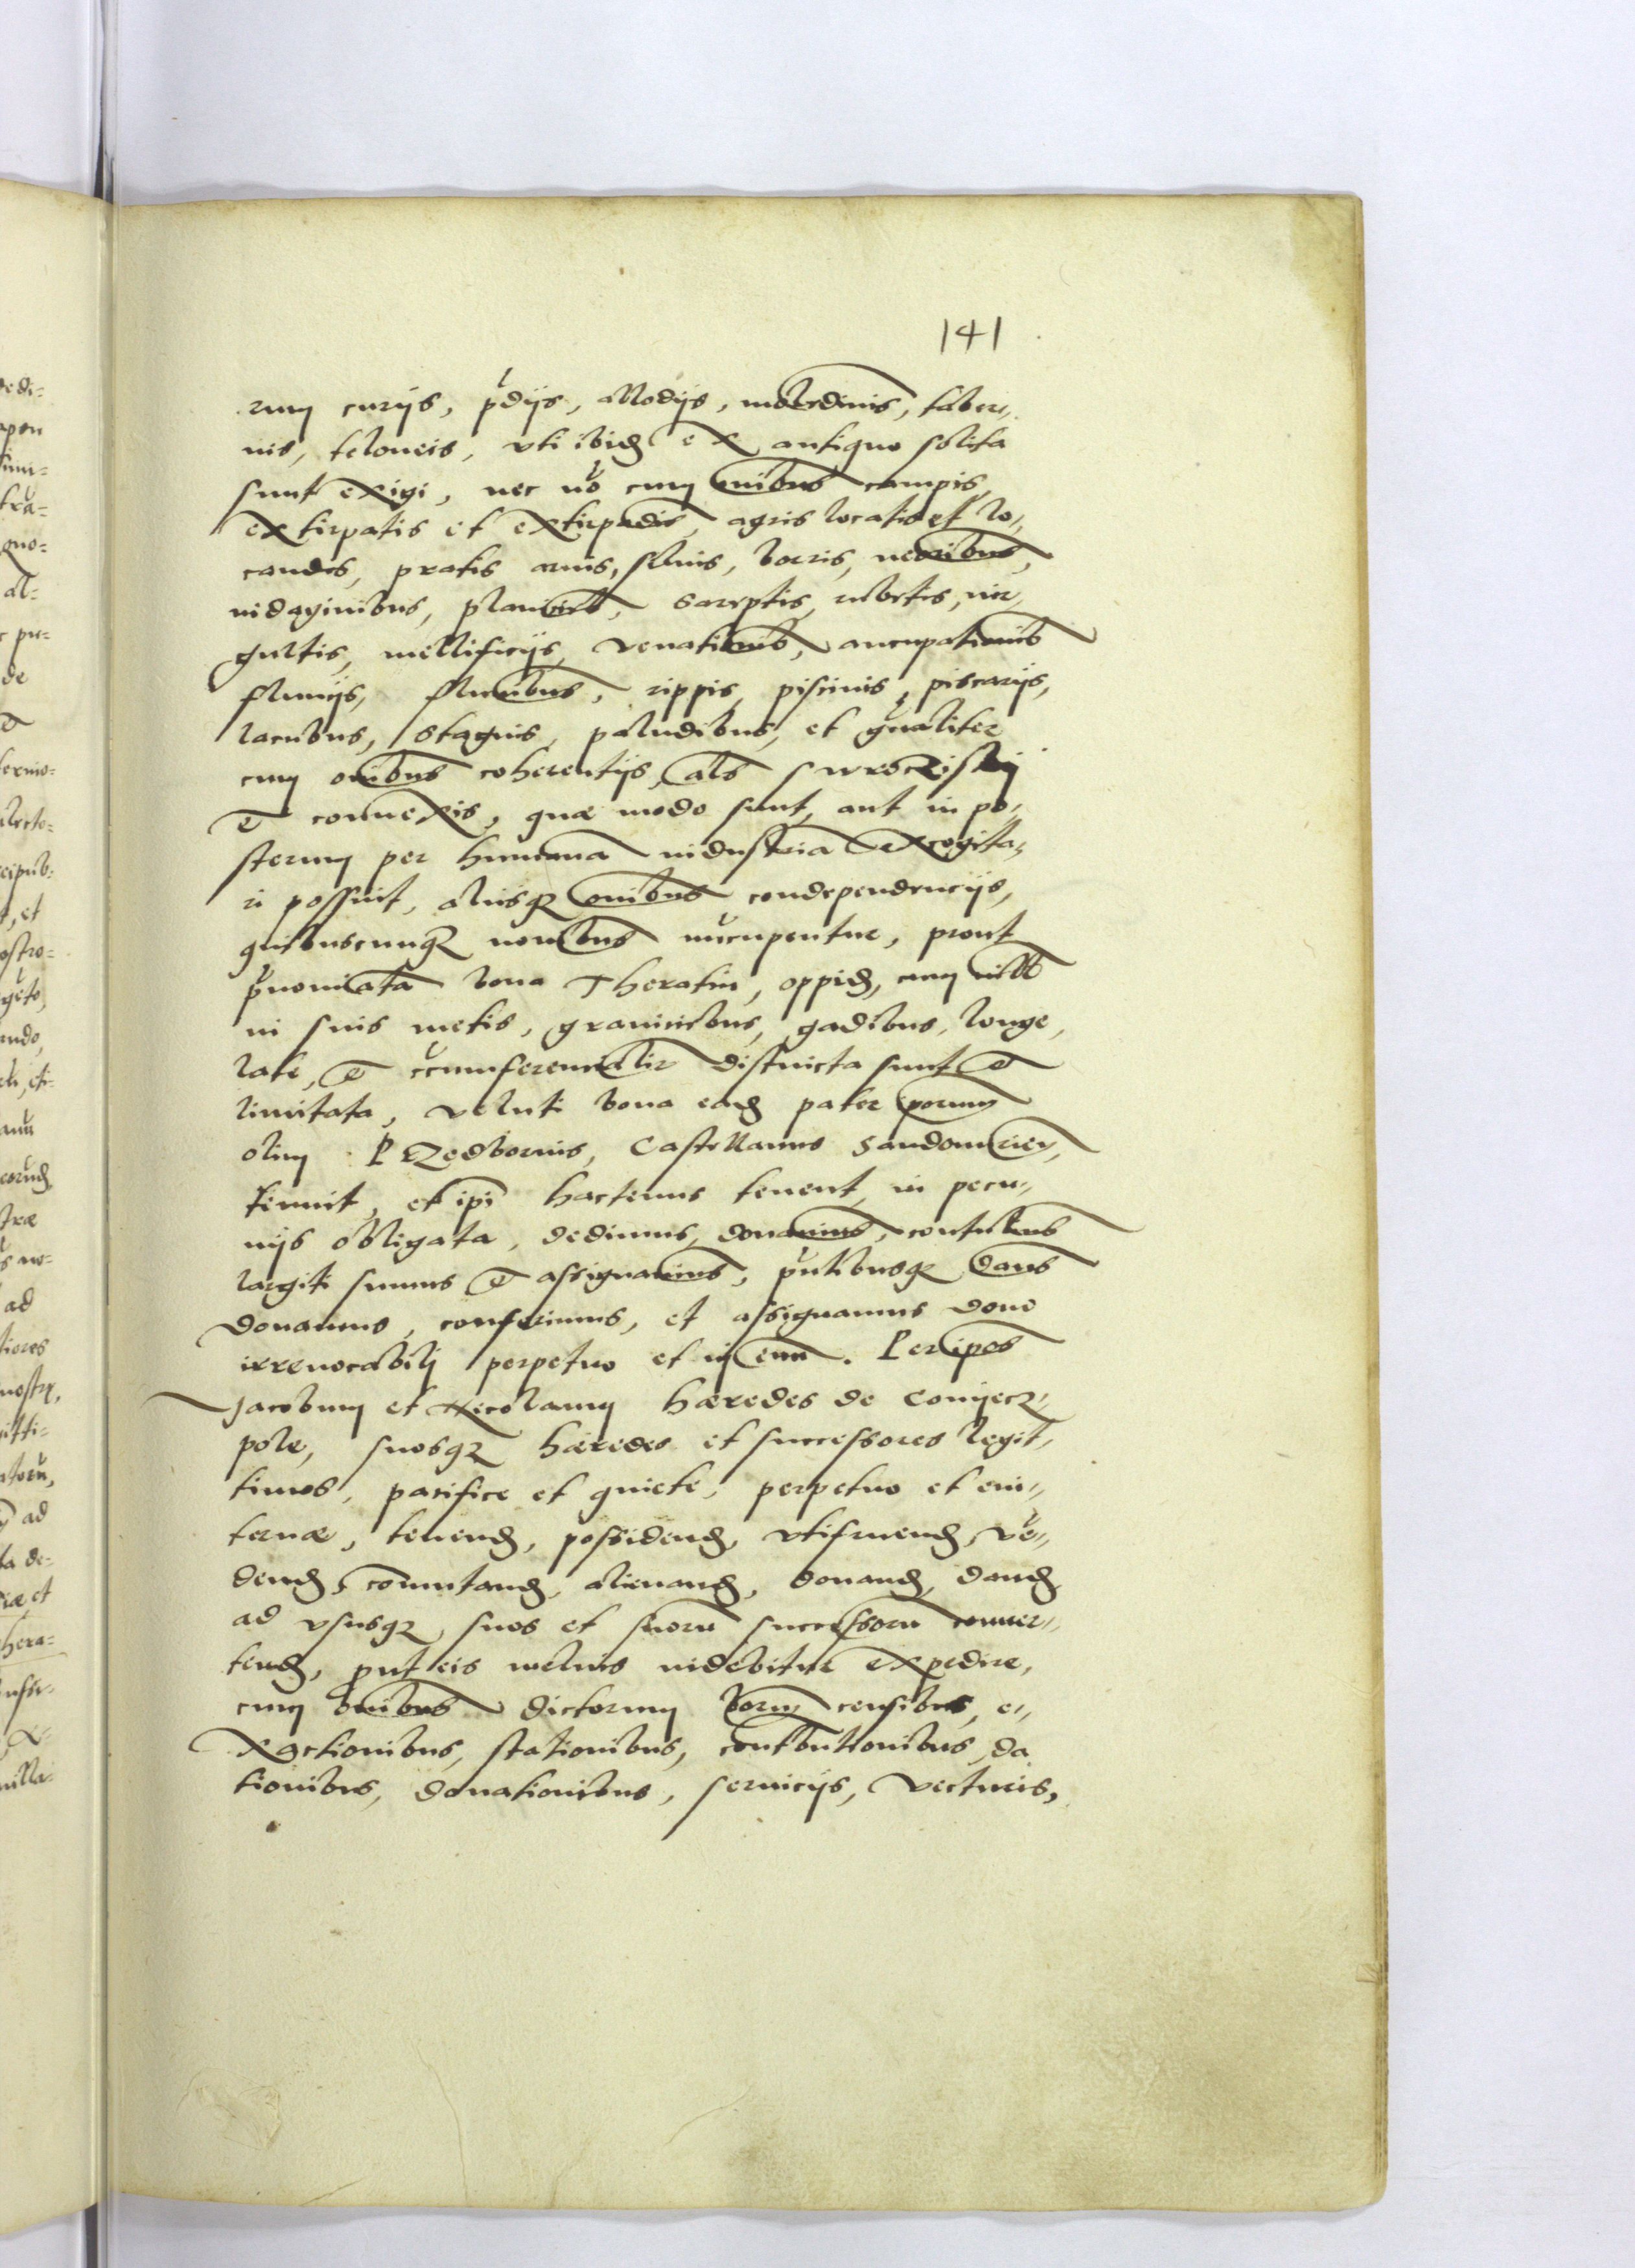 141
rum curijs, pdijs, allodijs, molendinis, taber,,
nis, teloneis, vti ibid ex antiquo solita
sunt exigi, nec no cum onibus campis,
extirpatis et extirpadis, agris locatis et lo,,
candis, pratis aruis, siluis, borris, nemoribus,
indaginibus, planicie, rubetis, vir,,
gultis, mellificijs, venationib, aucupationib
fluuijs, fluminibus, rippis, piscinis, piscarijs,
lacubus, stagnis, paludibus, et gnaliter
cum onibus coherentijs, als swrocziskij
et connexis, quæ modo sunt, aut in po,,
sterum per humana industria excogita,,
ri possint, alijsq onibus condependencijs,
quibuscunq nonibus nucupentur, prout
pnominata bona Theratin, oppid, cum vill
in suis metis, graniciebus, gadibus, longe,
late, et circumferencialir distincta sunt et
limitata, veluti bona ead pater iporum
olim PRzedborius, Castellanus Sandomirien,
tenuit, et ipi hactenus tenent, in pecu,,
nijs obligata, dedimus, donauims, contulims
largiti sumus et assignauims, pntibusq dams
donamus, conferimus, et assignamus dono
irreuocabilj perpetuo et in euu. Per ipos
Jacobum et Nicolaum hæredes de Conijecz,,
pole, suosq hæredes et successores legit,,
timos, pacifice et quiete, perpetuo et eui,,
ternæ, tenend, possidend, vtifruend, ve,,
dend, comutand, alienand, donand, dand
ad vsusq suos et suoru successoru conuer,,
tend, put eis melius videbitur expedire,
cum onibus dictorum bonorum censibus, e,,
xactionibus, stationibus, contbutionibus, da
tionibus, donationibus, seruicijs, vecturis,